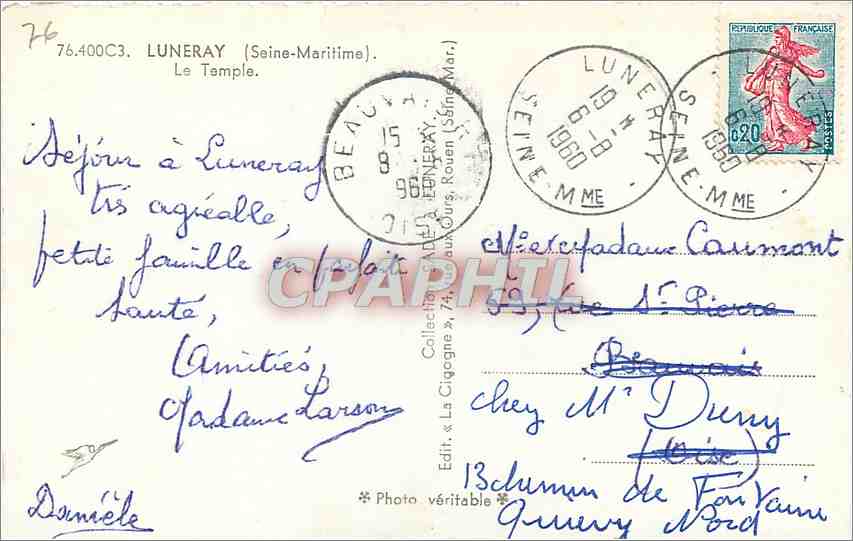 76
76.400C3. LUNERAY (Seine-Maritime).
Le Temple.
Séjour à Luneray
très agréable,
petite famille en parfaite
santé,
Amitiés,
Madame Larson
Danièle
Collection SADE à LUNERAY
Edit. « La Cigogne », 74, rue aux Ours, Rouen (Seine-Mar.)
✻ Photo véritable ✻
BEAUVAIS
15
8
196
OISE
LUNERAY
19 H
6-8
1960
SEINE-MME
LUNERAY
19 H
6-8
1960
SEINE-MME
REPUBLIQUE FRANÇAISE
0,20
POSTES
Mr et Madame Caumont
59, Rue St Pierre
Beauvais
chez Mr Duny
(Oise)
13 chemin de Fontaine
Nord
CPAPHIL